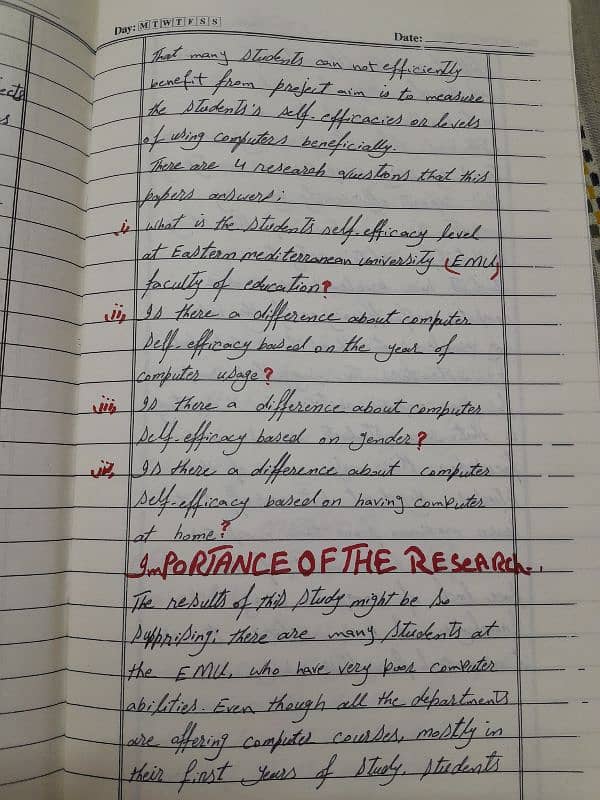 Day: M T W T F S S
Date:
ects
s
That many students can not efficiently
benefit from project aim is to measure
the students's self-efficacies or levels
of using computers beneficially.
There are 4 research questions that this
papers answers:
i, What is the students self-efficacy level
at Eastern mediterranean university (EMU)
faculty of education?
ii, Is there a difference about computer
self-efficacy based on the year of
computer usage?
iii, Is there a difference about computer
self-efficacy based on gender?
iv, Is there a difference about computer
self-efficacy based on having computer
at home?
ImPORTANCE OF THE RESEARCh.
The results of this study might be so
supprising; there are many students at
the EMU, who have very poor computer
abilities. Even though all the departments
are offering computer courses, mostly in
their first years of study, students